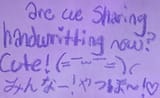 are we sharing
handwritting now?
Cute! (=^-ω-^=)
みんなー!やっほ〜!♡